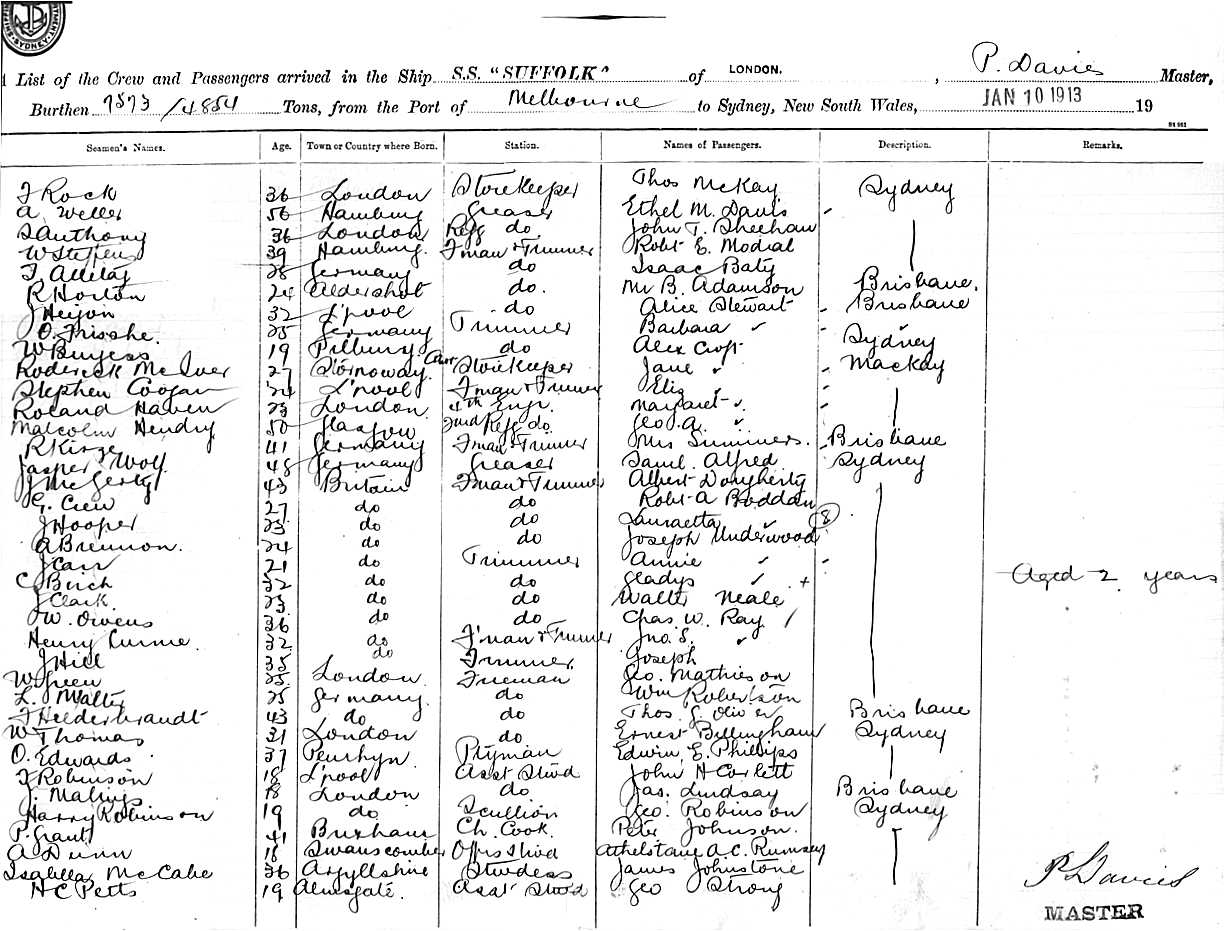 List of the Crew and Passengers arrived in the Ship S.S. "SUFFOLK" of LONDON, P. Davies Master,
Burthen 7573/4884 Tons, from the Port of Melbourne to Sydney, New South Wales, JAN 10 1913 19
Seamen's Names. Age. Town or Country where Born. Station. Names of Passengers. Description. Remarks.
F Rock 36 London Storekeeper Thos McKay Sydney
A Weller 56 Hamburg Greaser Ethel M. Davis "
S Anthony 36 London Refg do John T. Sheehan
W Steffens 39 Hamburg. F'man & Trimmer Robt E. Modral
F. 28 Germany do Isaac Baty
R Horton 24 Aldershot do. Mr B. Adamson Brisbane.
J Heijon 32 L'pool do Alice Stewart " Brisbane
O. Frissche. 25 Germany Trimmer Barbara ✓ "
W Burgess 19 Tilbury do Alex Croft Sydney
Roderick McIver 27 Stornoway Storekeeper Jane ✓ " Mackay
Stephen Coogan 24 L'pool F'man & Trimmer Eliz ✓ "
Roland Haven 23 London 4th Engr. Margaret ✓ "
Malcolm Hendry 50 Glasgow 2nd Refg do. Geo. A. ✓ "
R Kirze 41 Germany F'man & Trimmer Mrs Summers. " Brisbane
Jasper Woll 48 Germany Greaser Saml. Alfred Sydney
J McGerty 43 Britain F'man & Trimmer Albert Dougherty
G. Crew 27 do do Robt A Boddan
J Hooper 23 do do Lauraetta ✓ 8
A Brennon. 24 do do Joseph Underwood
J Carr 21 do Trimmer Annie ✓ "
C Birch 22 do do Gladys ✓ + Aged 2 years
J Clark. 23 do do Walter Neale
J W. Owens 36 do do Chas. W. Ray /
Henry Curme 32 do F'man & Trimmer Jno. S. ✓
J Hill 35 do Trimmer Joseph
W Green 25 London. Fireman Geo. Mathieson
L. Malter 25 Germany. do Wm Robertson
F Helderbrandt 43 do do Thos. G. Oliver Brisbane
W Thomas 31 London do Ernest Billingham Sydney
O. Edwards 37 Penrhyn Ptyman Edwin E. Phillips
F Robinson 18 L'pool Asst Stwd John H Corlett
J. Malings 18 London do Jas. Lindsay Brisbane
Harry Robinson 19 do. Scullion Geo. Robinson Sydney
P. Grant 41 Brixham Ch. Cook. Peter Johnson.
A Dunn 18 Swanscombe Offrs Stwd Athelstane A.C. Rumsey
Isabella McCabe 36 Argyllshire Stwdess James Johnstone
H C Petts 19 Asst Stwd Geo Strong
P Davies
MASTER